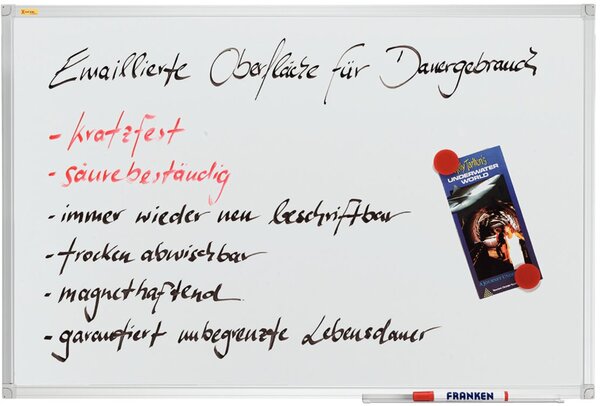 Emaillierte Oberfläche für Dauergebrauch
- kratzfest
- säurebeständig
- immer wieder neu beschriftbar
- trocken abwischbar
- magnethaftend
- garantiert unbegrenzte Lebensdauer
Tarlton's
UNDERWATER
WORLD
FRANKEN